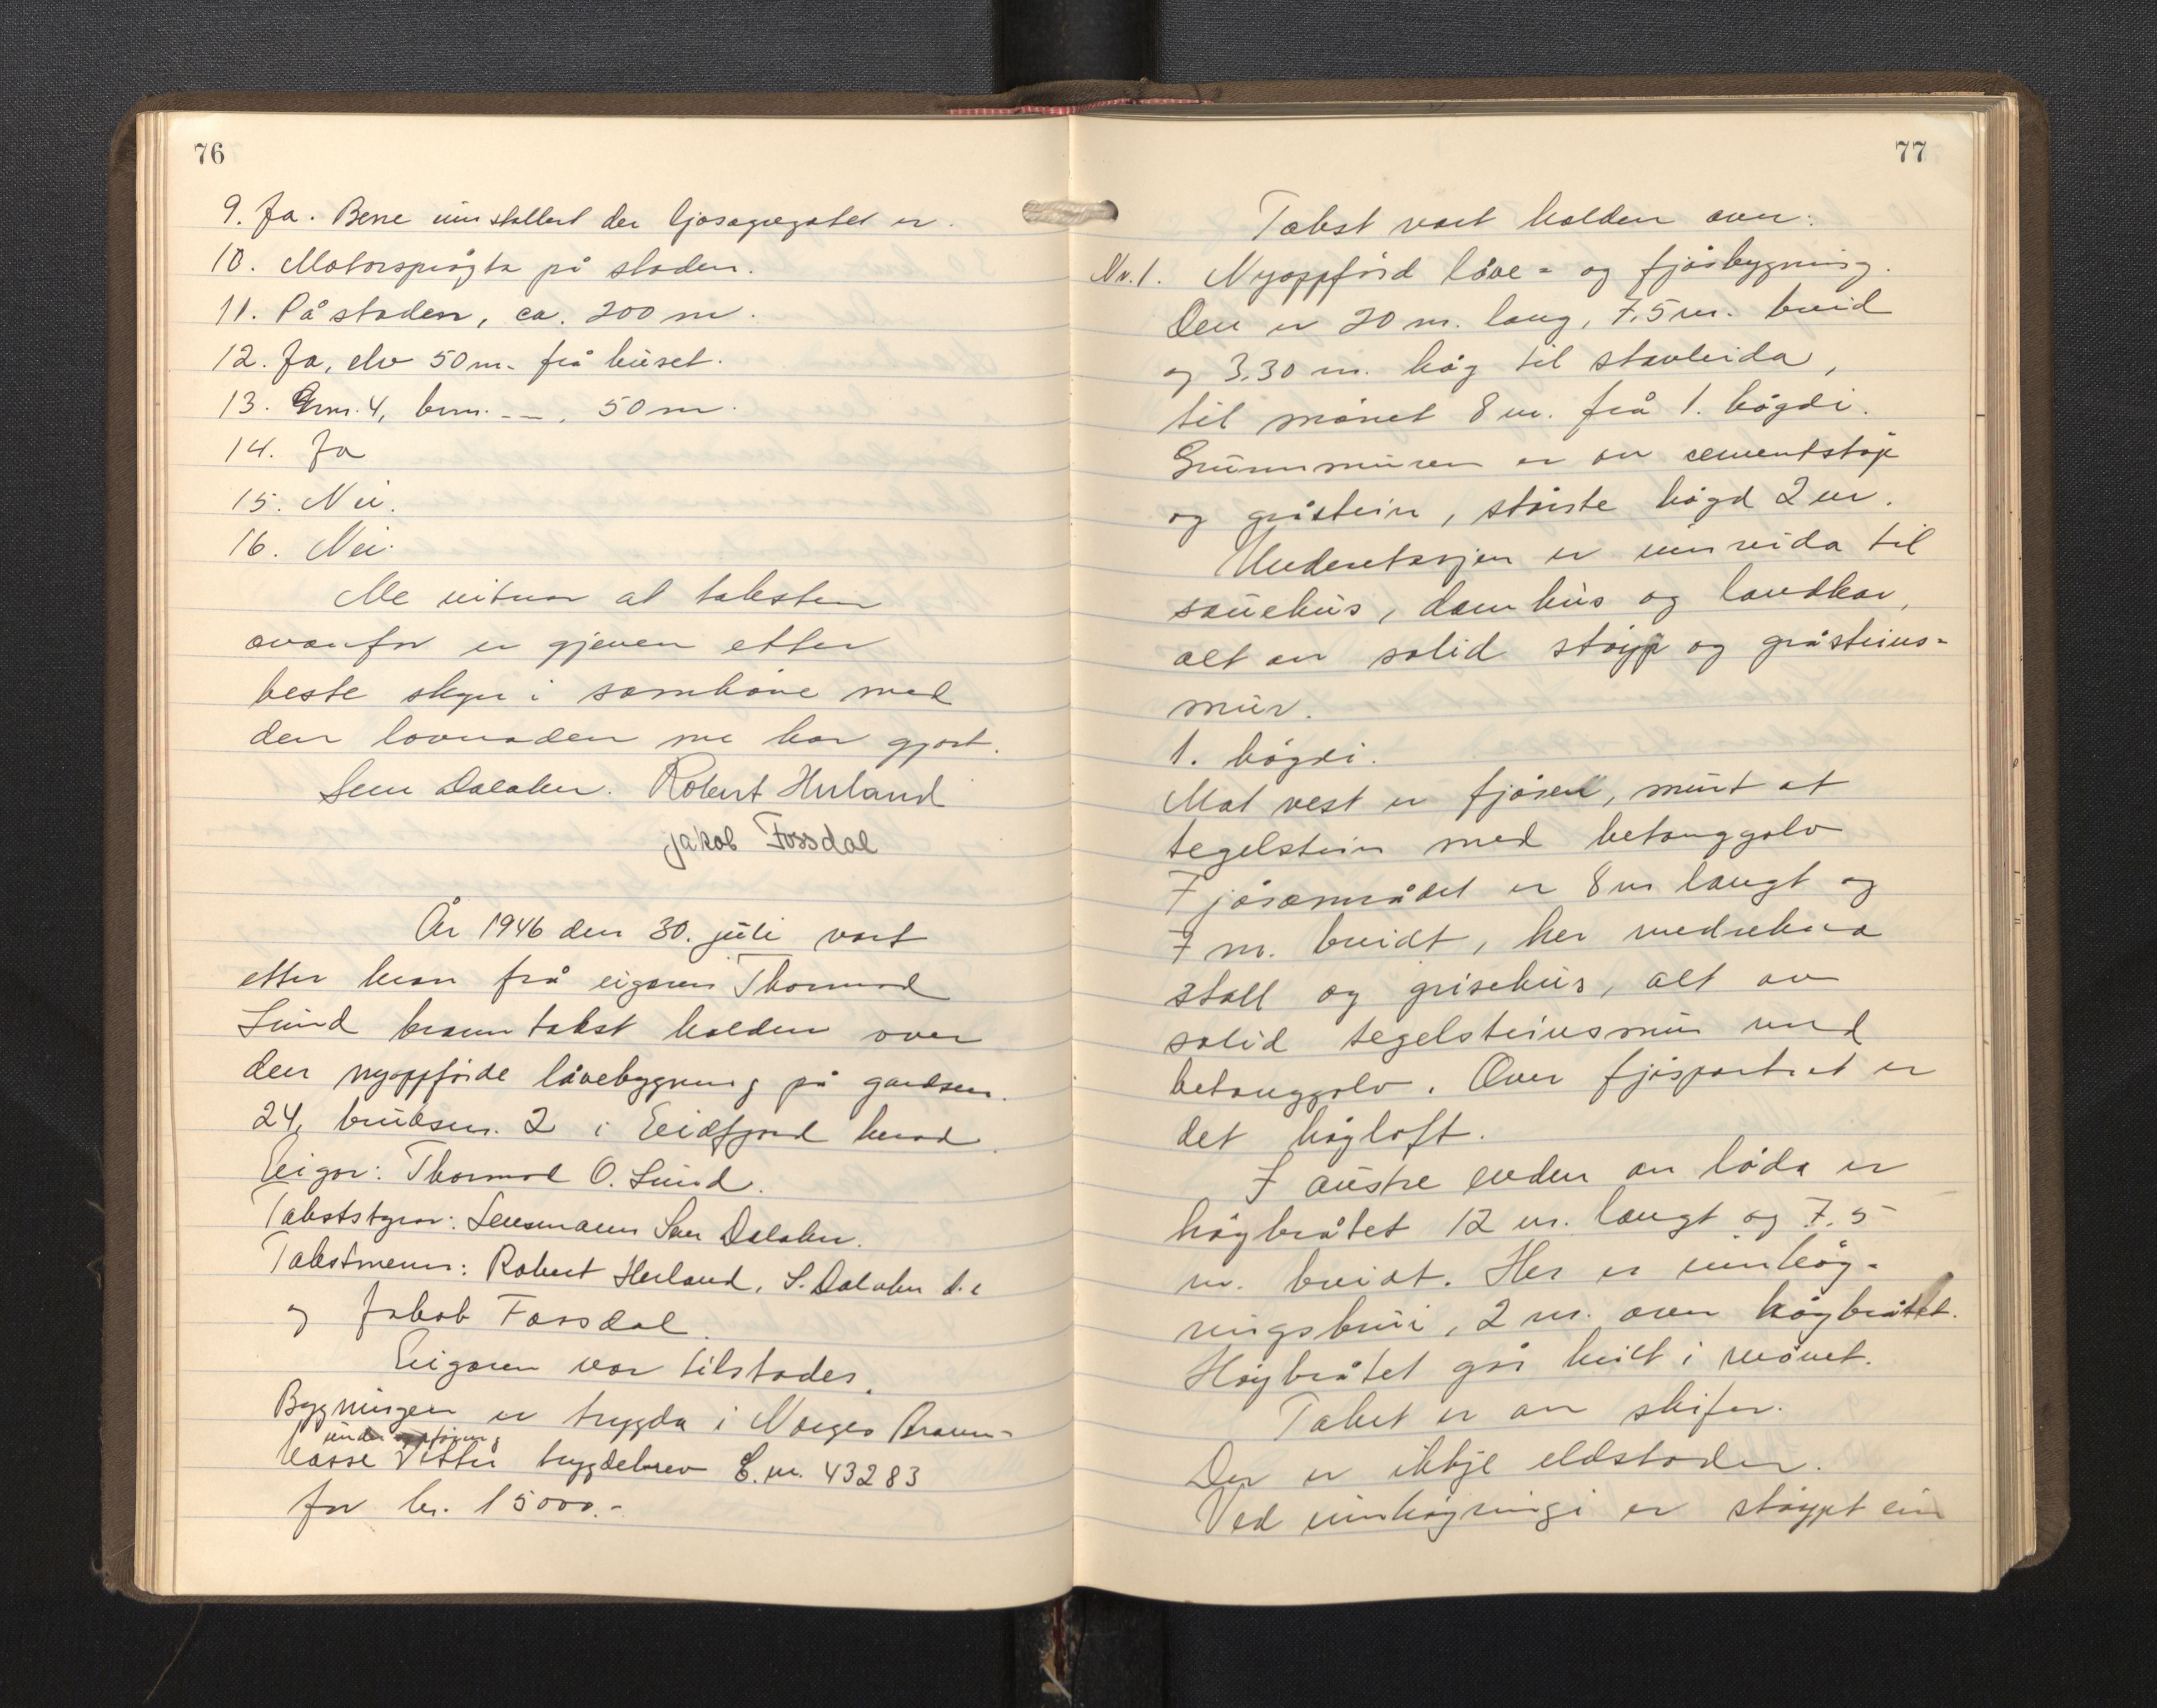 76
9. Ja. Berre innstallert der ljosagregatet er.
10. Motorsprøyta på staden.
11. På staden, ca. 200 m.
12. Ja, elv 50 m. frå huset.
13. Grnr. 4, brnr. — . 50 m.
14. Ja
15. Nei.
16. Nei.
Me vitnar at taksten
ovanfor er gjeven etter
beste skyn i samhøve med
den lovnaden me har gjort.
Sem Dalaker. Robert Herland
Jakob Fossdal
År 1946 den 30. juli vart
etter krav frå eigaren Thormod
Lund branntakst halden over
den nyoppførde løvebygning på gardsnr.
24, bruksnr. 2 i Eidfjord herad.
Eigar: Thormod O. Lund.
Takststyrar: Lensmann Sem Dalaker.
Takstmenn: Robert Herland, S. Dalaker d.e
og Jakob Fossdal.
Eigaren var tilstades.
Bygningen er trygda i Norges Brann-
under oppføring
kasse trygdebrev E. nr. 43283
for kr. 15000.-
77
Takst vart halden over:
Nr. 1. Nyoppførd løve- og fjøsbygning.
Den er 20 m. lang, 7,5 m. breid
og 3,30 m. høg til stavleida,
til mønet 8 m. frå 1. høgdi.
Grunnmuren er av cementstøp
og gråstein, største høgd 2 m.
Underetasjen er innreida til
sauehus, dam hus og landkar,
alt av solid støyp og gråsteins-
mur.
1. høgdi.
Mot vest er fjøsen, murt at
tegelstein med betonggolv
Fjøsområdet er 8 m langt og
7 m. breidt, her medrekna
stall og grisehus, alt av
solid tegelsteinsmur med
betonggolv. Over fjøspartiet er
det høyloft.
I austre enden av løda er
høybråtet 12 m. langt og 7,5
m. breidt. Her er innhøy-
ningsbrui, 2 m. over høybråtet.
Høybråtet går heilt i mønet.
Taket er av skifer.
Der er ikkje eldstader.
Ved innhøyningi er støypt ein